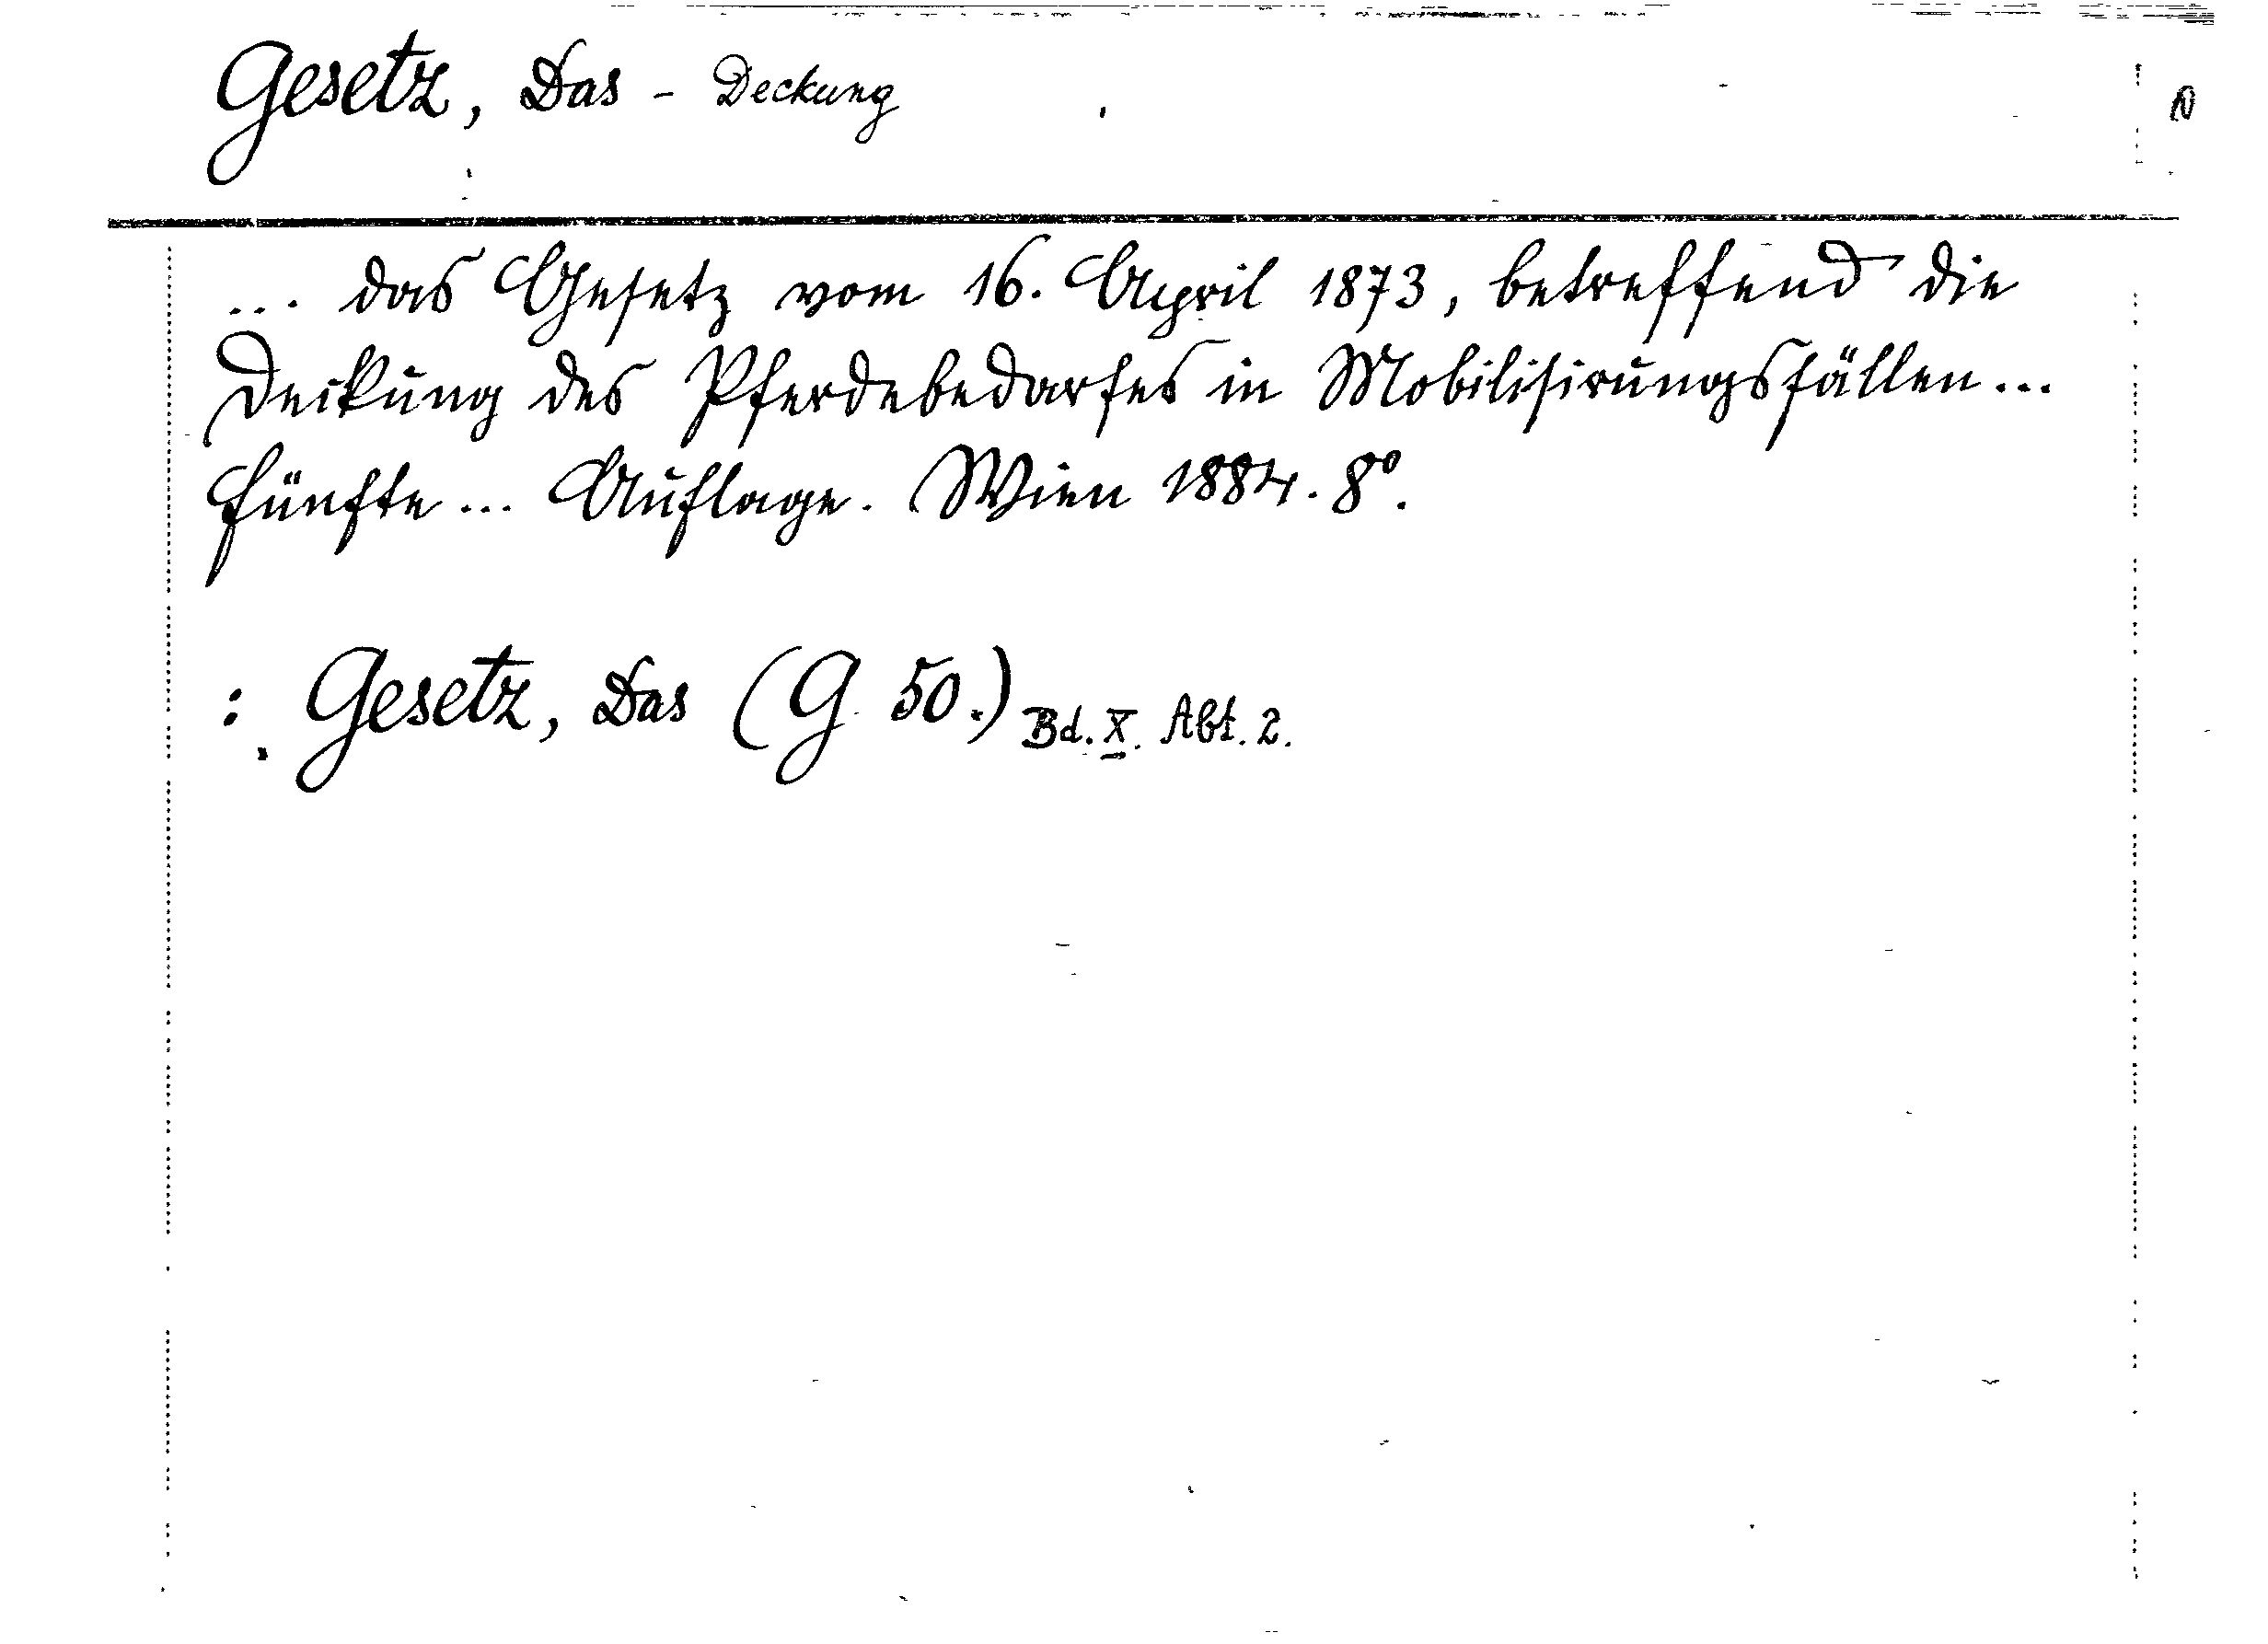 Gesetz, Das - Deckung
... das Gesetz vom 16. April 1873, betreffend die
Deckung des Pferdebedarfes in Mobilisirungsfällen...
Fünfte ... Auflage. Wien 1884. 8°.
: Gesetz, Das (G 50.) Bd. X. Abt. 2.